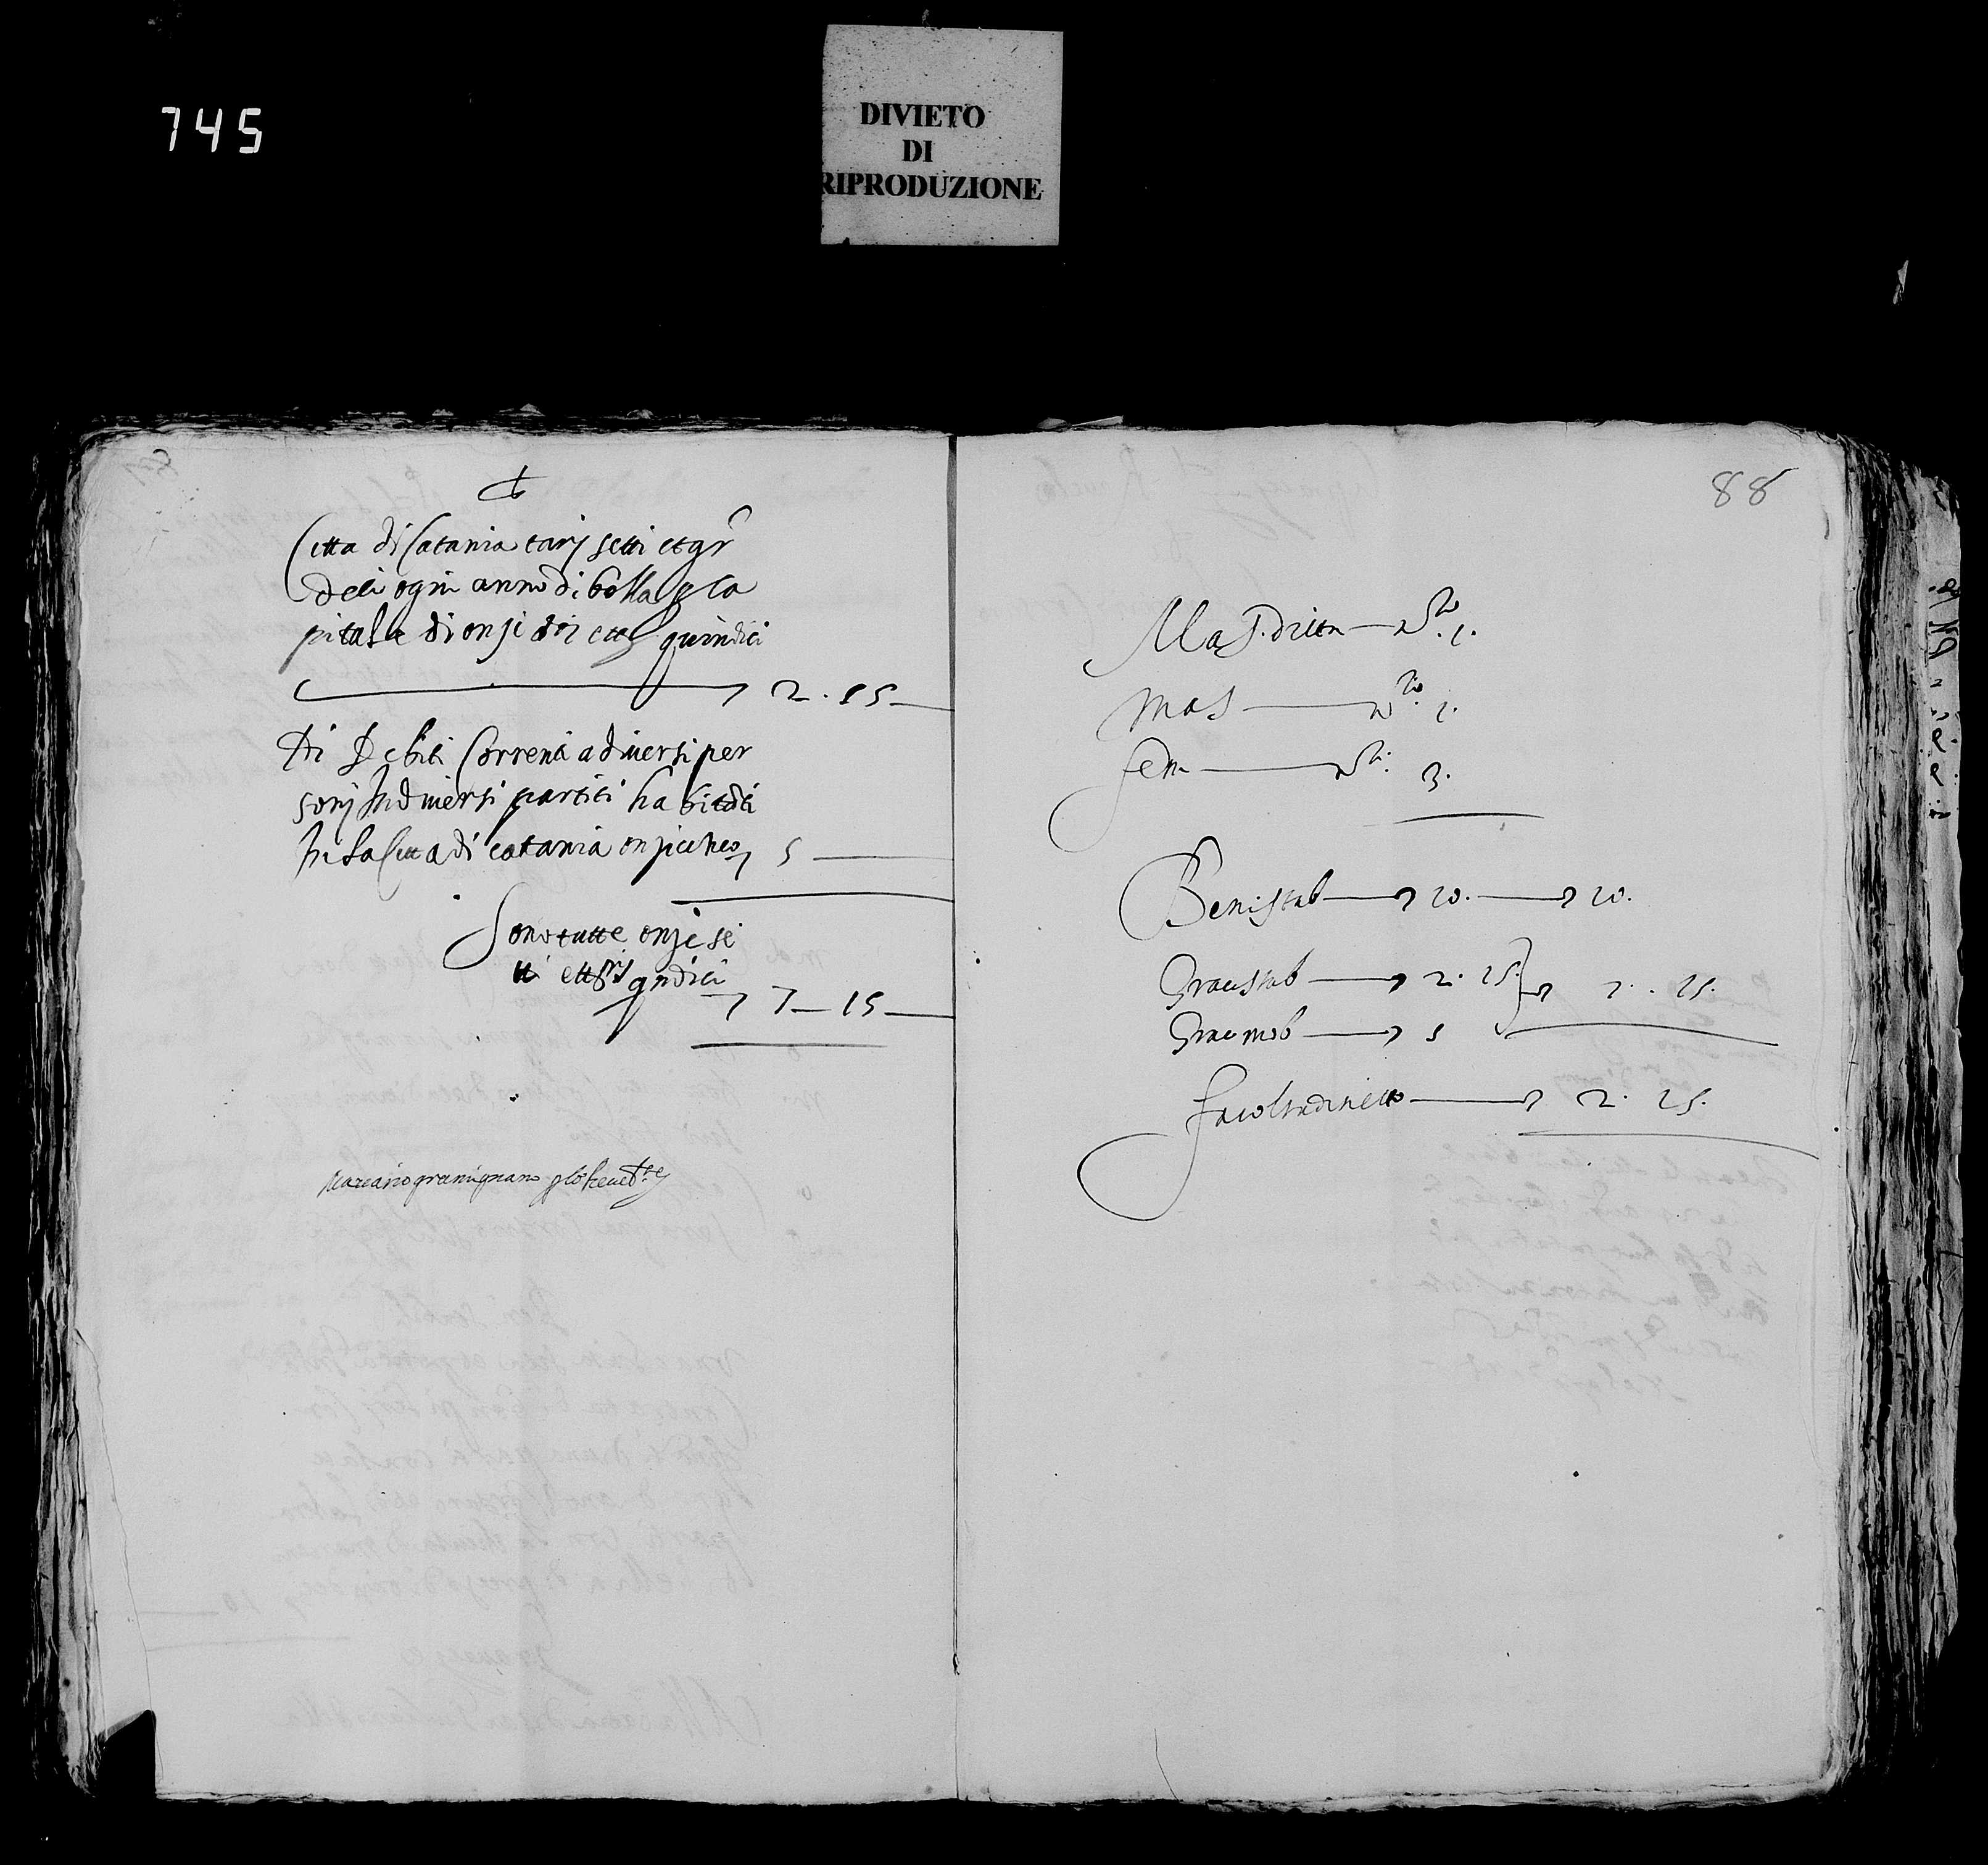 745
DIVIETO
DI
RIPRODUZIONE
Citta di Catania tarj setti et gr
deci ogni anno di bolla p ca
pitale di onze doi et tt quindici
2. 15
Di Debiti Correnti a diversi per
sonj In diversi partiti habitati
In la Citta di catania onze
5
Sono tutte onze se
tti et ttrj qndici
7 15
Mariano gramignano
88
Mas. di etta no 1.
Mas no 1.
fem no 3.
Beni stab 20. 20.
Grac stab 2. 15. 7. 15.
Grac mob 5
facolta di netto 12. 15.